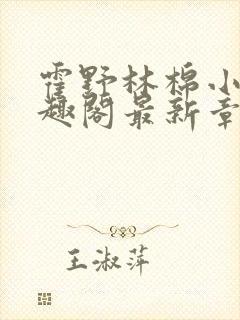 霍野林棉小
趣阁最新章
王淑萍